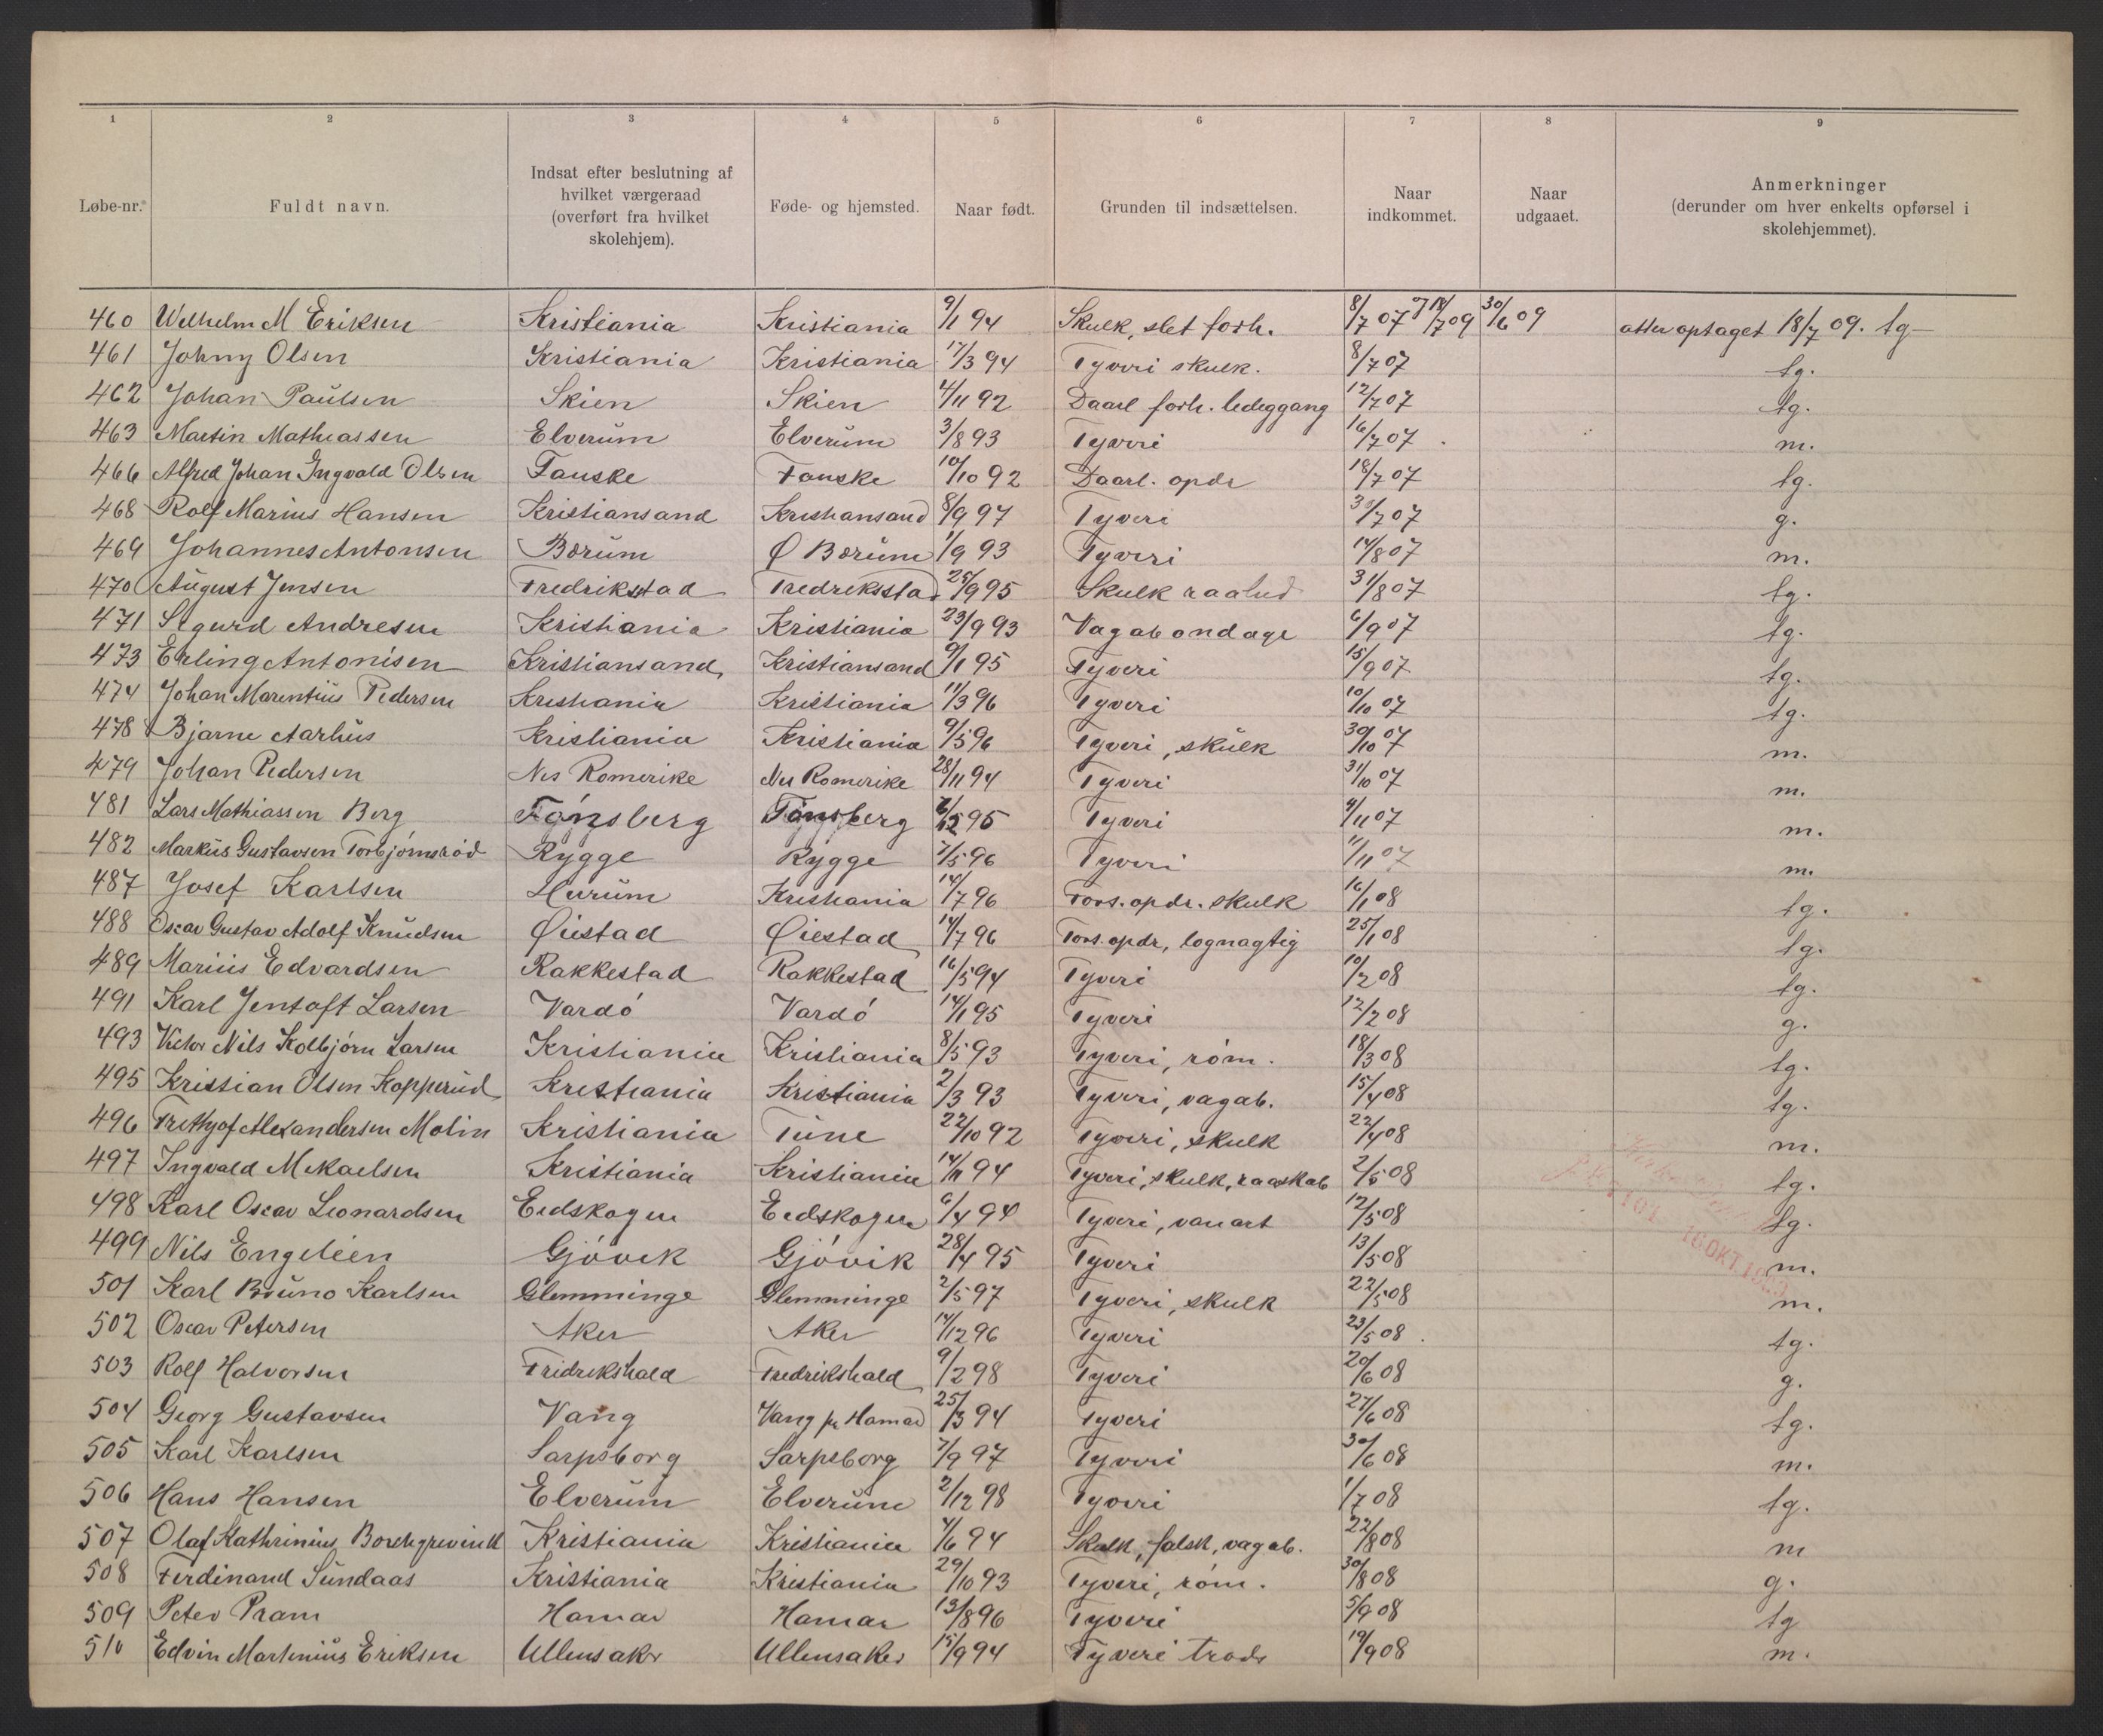 1 2 3 4 5 6 7 8 9
Løbe-nr. Fuldt navn. Indsat efter beslutning af hvilket værgeraad (overført fra hvilket skolehjem). Føde- og hjemsted. Naar født. Grunden til indsættelsen. Naar indkommet. Naar udgaaet. Anmerkninger (derunder om hver enkelts opførsel i skolehjemmet).
460 Wilhelm M Eriksen Kristiania Kristiania 9/1 94 Skulk, slet forh. 8/7 07 og 18/7 09 30/6 09 atter optaget 18/7 09. tg
461 Johny Olsen Kristiania Kristiania 17/3 94 Tyveri skulk. 8/7 07 tg.
462 Johan Paulsen Skien Skien 4/11 92 Daarl forh. lediggang 12/7 07 tg.
463 Martin Mathiassen Elverum Elverum 3/8 93 Tyveri 16/7 07 m.
466 Alfred Johan Ingvald Olsen Fauske Fauske 10/10 92 Daarl. opdr 18/7 07 tg.
468 Rolf Marius Hansen Kristiansand Kristiansand 8/9 97 Tyveri 30/7 07 g.
469 Johannes Antonsen Bærum Ø Bærum 1/9 93 Tyveri 14/8 07 m.
470 August Jensen Fredrikstad Fredriksstad 25/9 95 Skulk raahed 31/8 07 tg.
471 Sigurd Andresen Kristiania Kristiania 23/9 93 Vagabondage 6/9 07 tg.
473 Erling Antonisen Kristiansand Kristiansand 9/1 95 Tyveri 15/9 07 tg.
474 Johan Marentius Pedersen Kristiania Kristiania 11/3 96 Tyveri 10/10 07 tg.
478 Bjarne Aarhus Kristiania Kristiania 9/5 96 Tyveri, skulk 30/10 07 m.
479 Johan Pedersen Nes Romerike Nes Romerike 28/11 94 Tyveri 31/10 07 m.
481 Lars Mathiassen Berg Tønsberg Tønsberg 95 Tyveri 4/11 07 m.
482 Markus Gustavsen Torbjørnsrød Rygge Rygge 7/5 96 Tyveri 11/11 07 m.
487 Josef Karlsen Hurum Kristiania 14/7 96 Fors. opdr. skulk 16/1 08 tg.
488 Oscar Gustav Adolf Knudsen Øiestad Øiestad 14/7 96 Fors. opdr, løgnagtig 25/1 08 tg.
489 Marius Edvardsen Rakkestad Rakkestad 16/5 94 Tyveri 10/2 08 tg.
491 Karl Jentoft Larsen Vardø Vardø 14/1 95 Tyveri 12/2 08 g.
493 Victor Nils Kolbjørn Larsen Kristiania Kristiania 8/5 93 Tyveri, røm. 18/3 08 tg.
495 Kristian Olsen Kopperud Kristiania Kristiania 2/3 93 Tyveri, vagab. 15/4 08 tg.
496 Frithjof Alexandersen Molin Kristiania Tune 22/10 92 Tyveri, skulk 22/4 08 m.
497 Ingvald Mikaelsen Kristiania Kristiania 14/11 94 Tyveri, skulk, raaskab 2/5 08 tg.
498 Karl Oscar Leonardsen Eidskogen Eidskogen 6/4 94 Tyveri, vanart 12/5 08 tg.
499 Nils Engelien Gjøvik Gjøvik 28/4 95 Tyveri 13/5 08 m.
501 Karl Bruno Karlsen Glemminge Glemminge 2/5 97 Tyveri, skulk 22/5 08 m.
502 Oscar Petersen Aker Aker 14/12 96 Tyveri 23/5 08 tg.
503 Rolf Halvorsen Fridrikshald Fredrikshald 9/2 98 Tyveri 20/6 08 g.
504 Georg Gustavsen Vang Vang pr Hamar 25/3 94 Tyveri 27/6 08 tg.
505 Karl Karlsen Sarpsborg Sarpsborg 7/9 97 Tyveri 30/6 08 m.
506 Hans Hansen Elverum Elverum 2/12 98 Tyveri 1/7 08 tg.
507 Olaf Kathrinius Borchgrevink Kristiania Kristiania 4/6 94 Skulk, falsk, vagab. 22/8 08 m
508 Ferdinand Sundaas Kristiania Kristiania 29/10 93 Tyveri, røm. 30/8 08 g.
509 Peter Pram Hamar Hamar 13/8 96 Tyveri 5/9 08 tg
510 Edvin Martinius Eriksen Ullensaker Ullensaker 15/9 94 Tyveri trods 19/9 08 m.